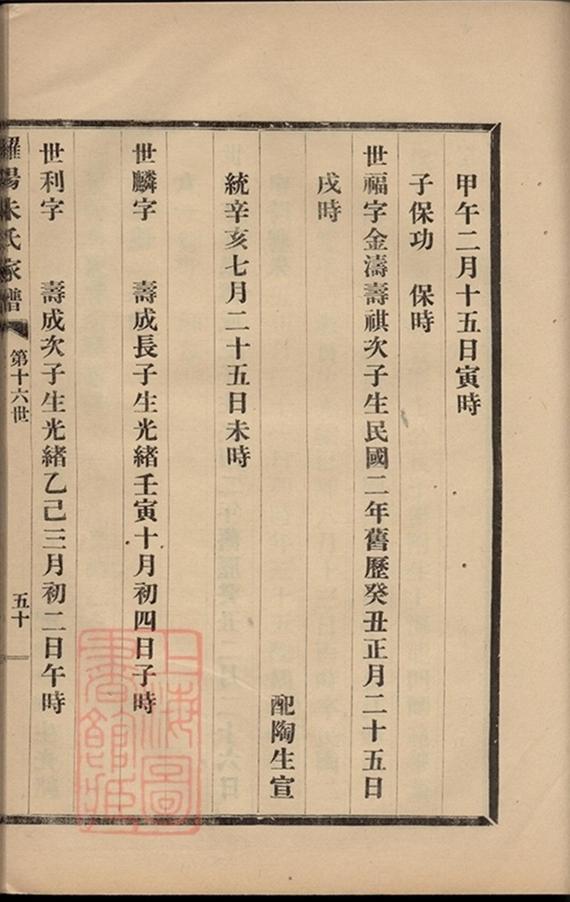 甲午二月十五日寅時
子保功 保時
世福字金濤壽祺次子生民國二年舊歷癸丑正月二十五日
戌時
配陶生宣
統辛亥七月二十五日未時
世麟字 壽成長子生光緒壬寅十月初四日子時
世利字 壽成次子生光緒乙己三月初二日午時
羅陽朱氏家譜 第十六世 五十
上海圖書館藏